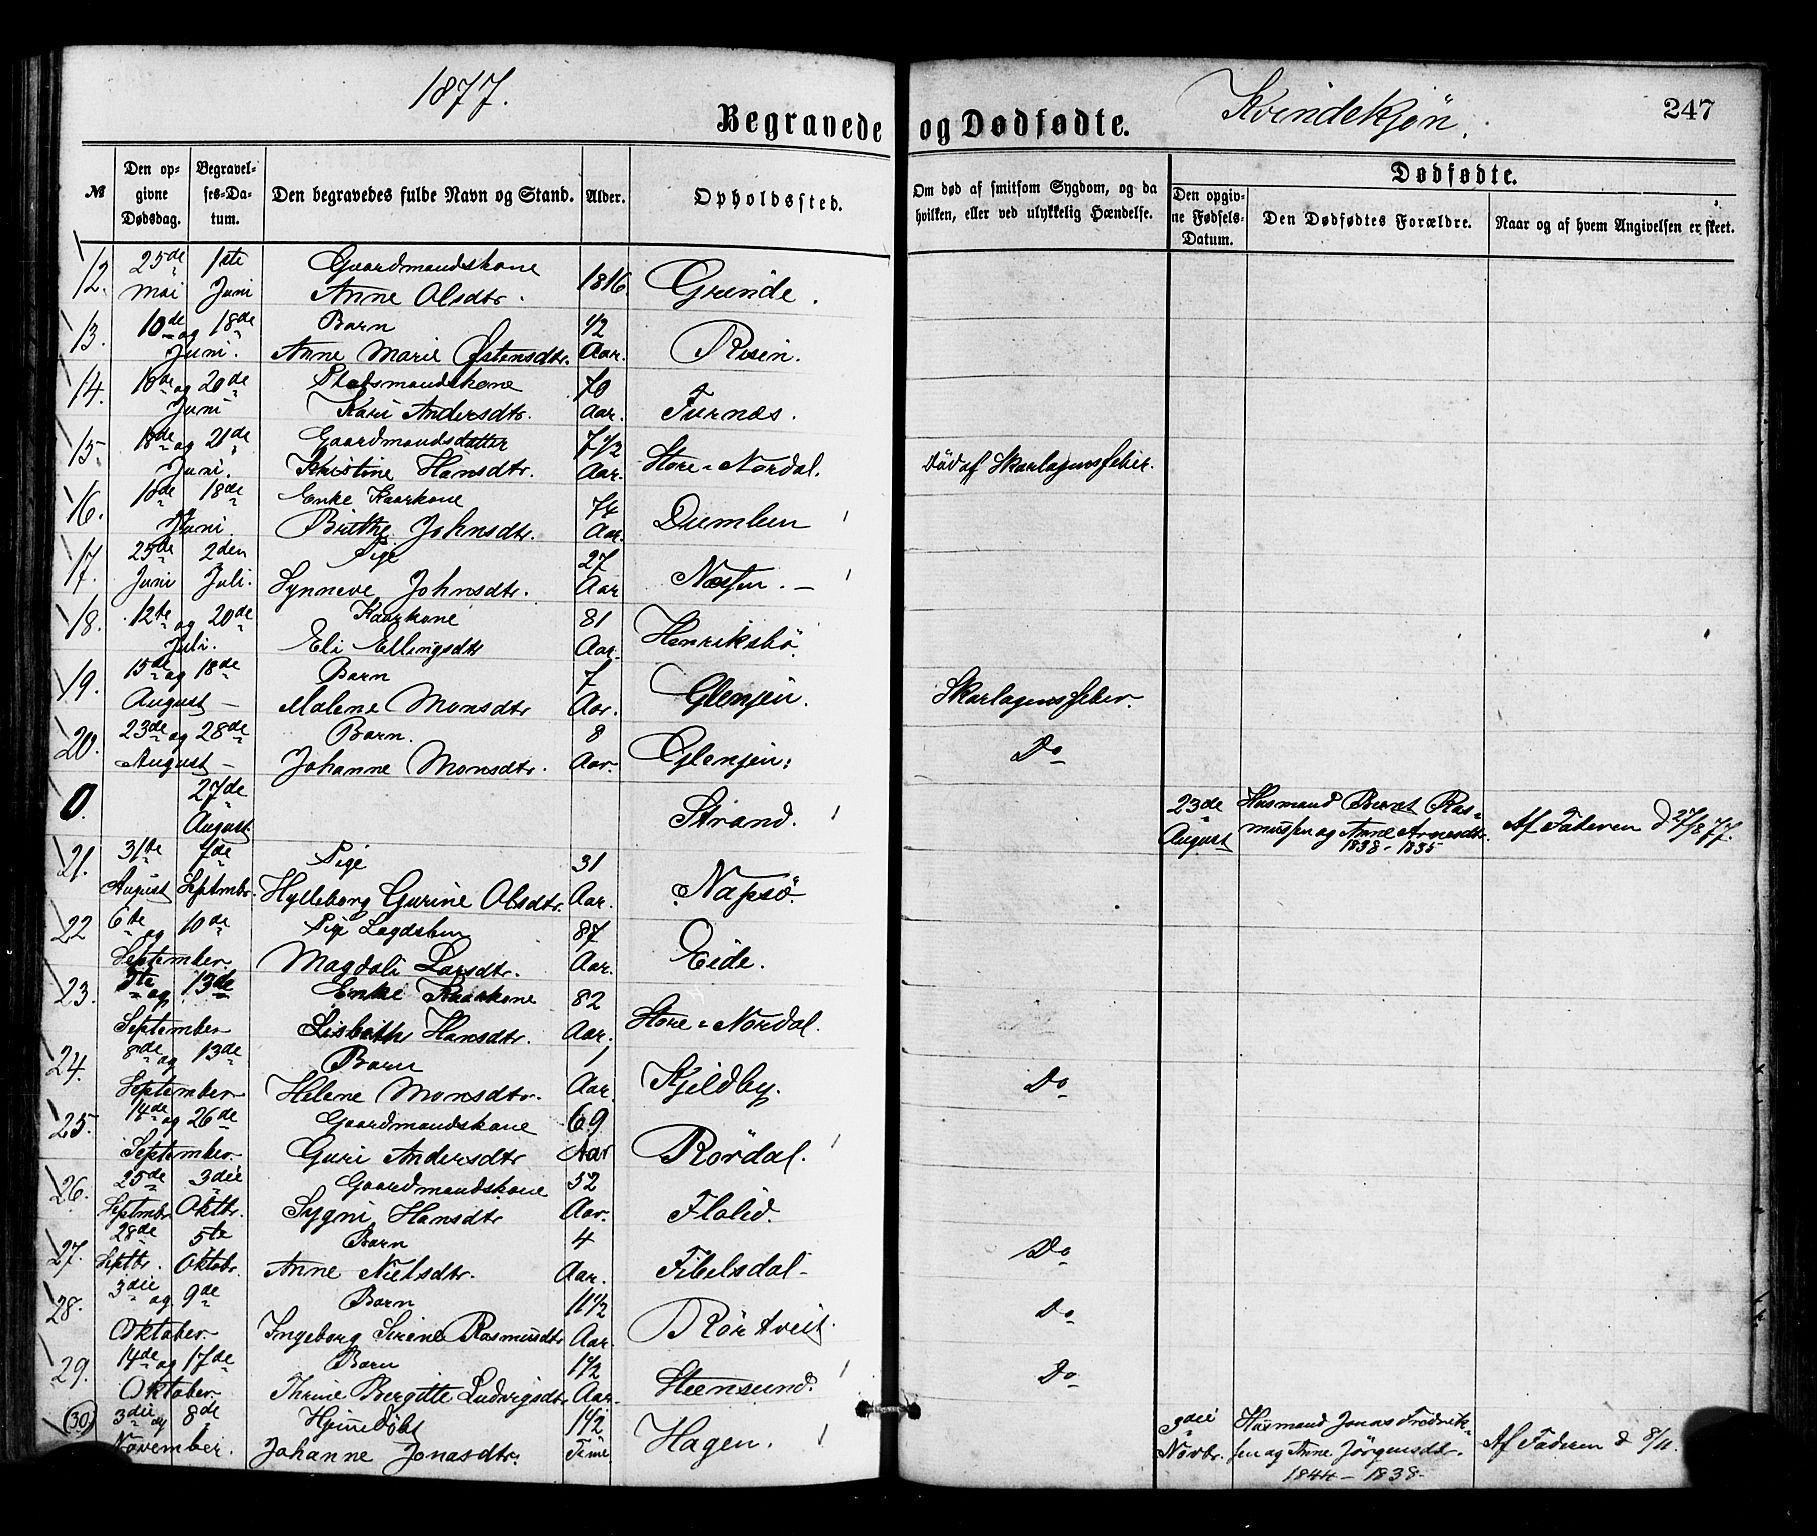 1877.
Begravede og Dødfødte.
Kvindekjøn.
247
№
Den opgivne Dødsdag.
Begravelses-Datum.
Den begravedes fulde Navn og Stand.
Alder.
Opholdssted.
Om død af smitsom Sygdom, og da hvilken, eller ved ulykkelig Hændelse.
Dødfødte.
Den opgivne Fødsels-Datum.
Den Dødfødtes Forældre.
Naar og af hvem Angivelsen er skeet.
12. 25de Mai 1ste Juni Gaardmandskone Anne Olsdtr. 1816. Grinde.
13. 10de og 18de Juni. Barn Anne Marie Østensdtr. 1/2 Aar. Risin.
14. 18de og 20de Juni Pladsmandskone Kari Andersdtr. 70 Aar. Furnæs.
15. 18de og 21de Juni. Gaardmandsdatter Kristine Hansdtr. 7 1/2 Aar. Store-Nordal. Död af Skarlagensfeber.
16. 10de 18de Juni Enke Kaarkone Brithe Johnsdtr. 74 Aar.
17. 25de Juni 2den Juli. Pige Synneve Johnsdtr. 27 Aar Næssen. —
18. 12te og 20de Juli. Kaarkone Eli Ellingsdtr 81 Aar. Henriksbö.
19. 15de og 18de August — Barn Malene Monsdtr 7 Aar. Glenjen. Skarlagensfeber.
20. 23de og 28de August — Barn. Johanne Monsdtr. 8 Aar. Glenjen. Do
0. 27de August. Strand. 23de August Husmand Berat Rasmussen og Anne Arnesdtr. 1838 - 1835 Af Faderen d 27/8 77.
21. 31te August 7de Septmbr. Pige Hylleborg Gurine Olsdtr. 31 Aar. Napsö.
22 6te og 10de September Pige Lægdslem Magdali Larsdtr. 87 Aar. Eide.
23. 5te og 13de September Enke Kaarkone Lisbeth Hansdtr. 82 Aar. Store-Nordal.
24. 8de og 13de September Barn Helene Monsdtr. 1 Aar. Kjeldby. Do
25. 14de og 26de September Gaardmandskone Guri Andersdtr 69 Aar Rördal.
26. 25de Septmbr 3die Oktbr. Gaardmandskone Sygni Hansdtr 52 Aar. Flölid.
27. 28de Septbr. 5te Oktobr. Barn Anne Nielsdtr. 4 Aar. Fibelsdal - Do
28. 3die og 9de Oktober Barn Ingeborg Sirine Rasmusdtr 11 1/2 Aar. Rörtveit. Do
29. 14de og 17de Oktober Barn Thrine Bergitte Ludvigsdtr 1 1/2 Aar. Steensund. Do
30. 3die og 8de November. Hjemedöbt Johanne Jonasdtr. 1/2 Time Hagen. 3die Novbr. Husmand Jonas Fredriksen og Anne Jörgensdtr 1844 - 1838 Af Faderen d 8/11.